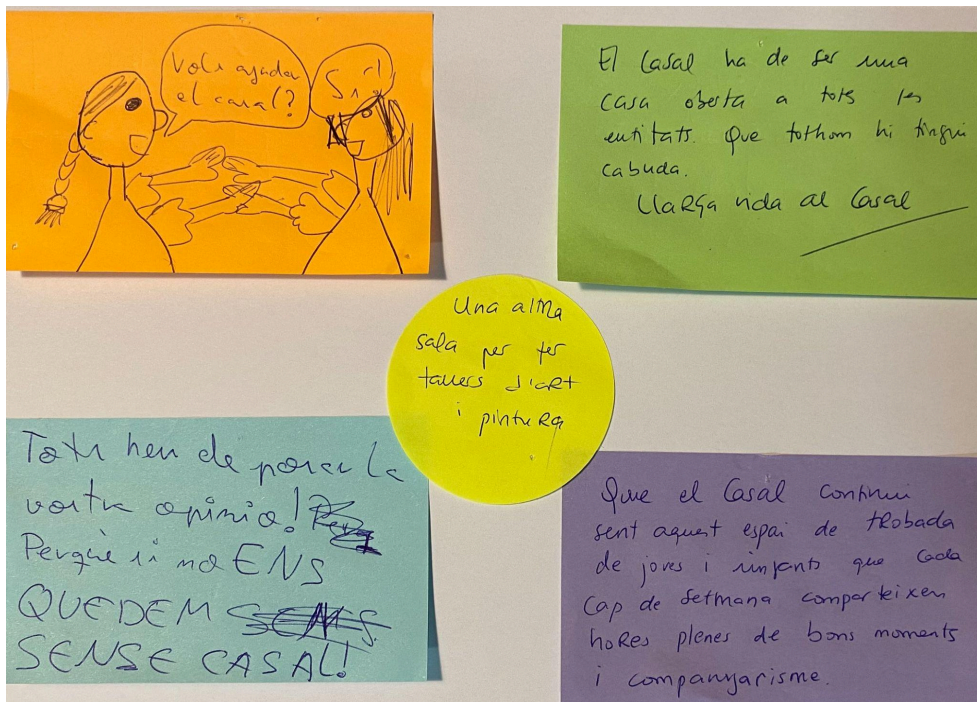 Vols ajudar
el casal?
Sí!
El Casal ha de ser una
casa oberta a tots les
entitats. Que tothom hi tingui
cabuda.
Llarga vida al Casal
Una altra
sala per fer
tallers d'art
i pintura
Tots heu de posar la
vostra opinio!
Perquè si no ENS
QUEDEM
SENSE CASAL!
Que el Casal continui
sent aquest espai de trobada
de joves i infants que cada
cap de setmana comparteixen
hores plenes de bons moments
i companyarisme.